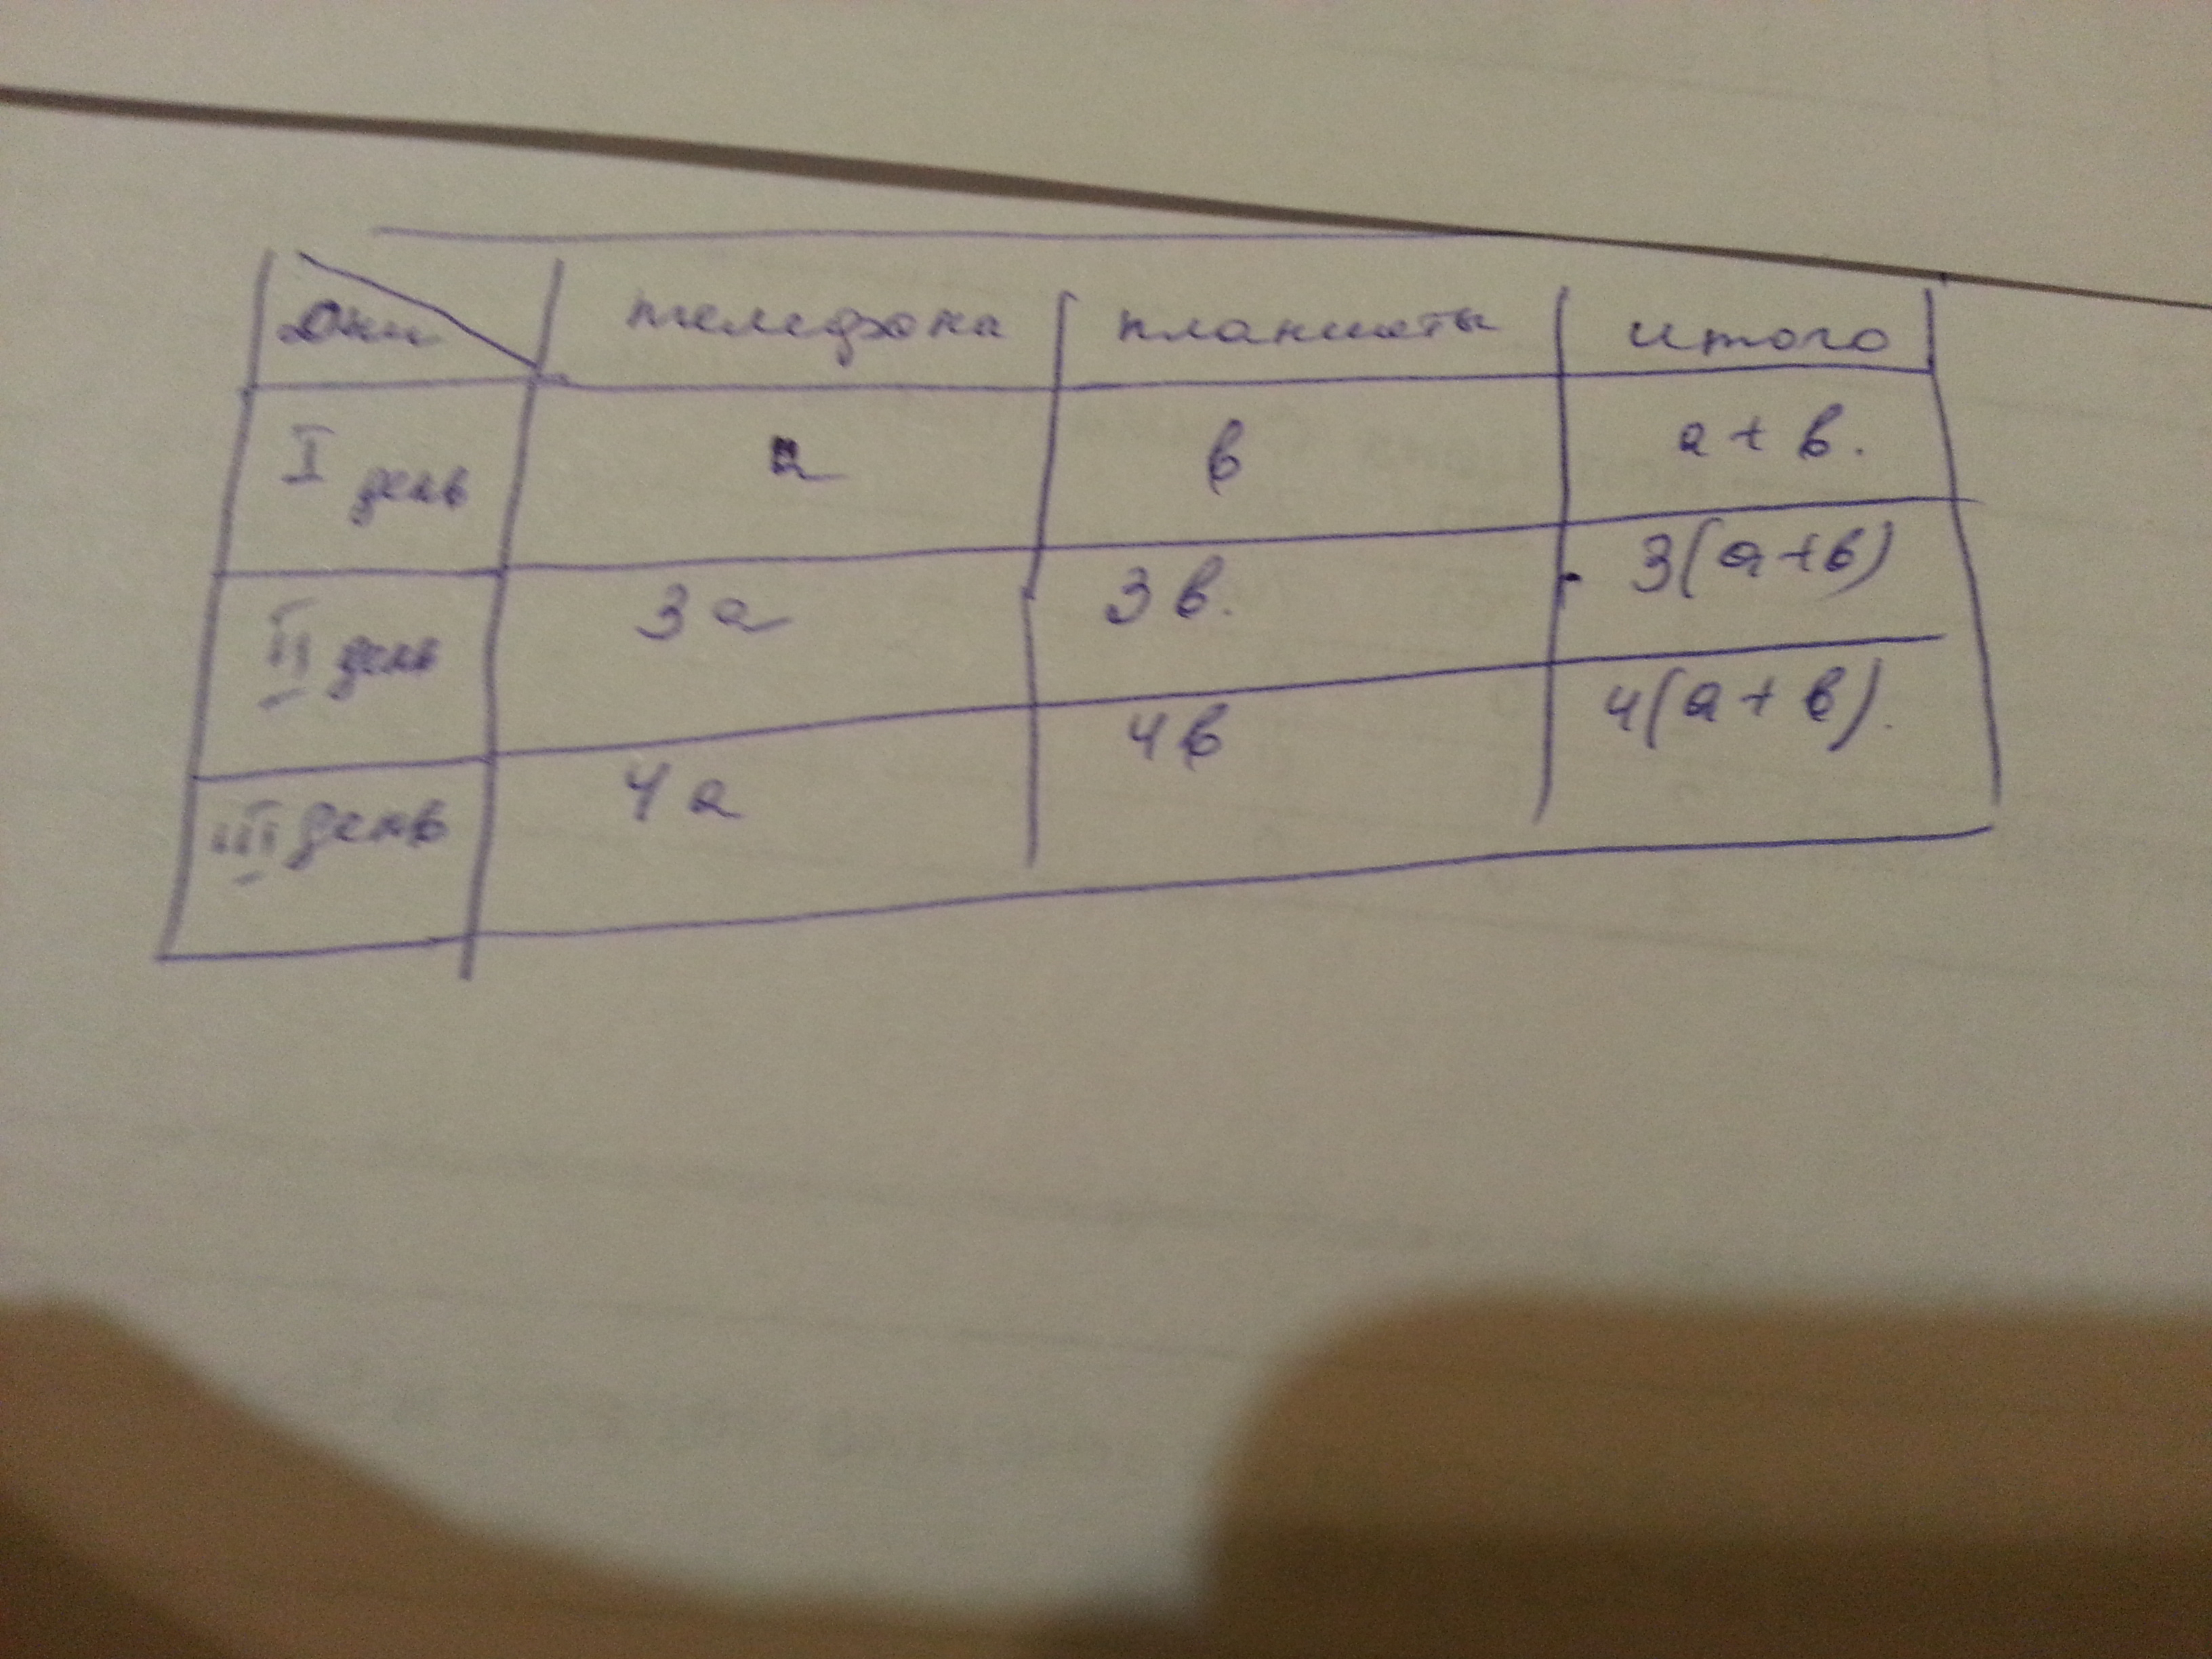 Дни телефона планшеты итого
I день а в а + в.
II день 3а 3в. 3(а+в)
III день 4а 4в 4(а + в).